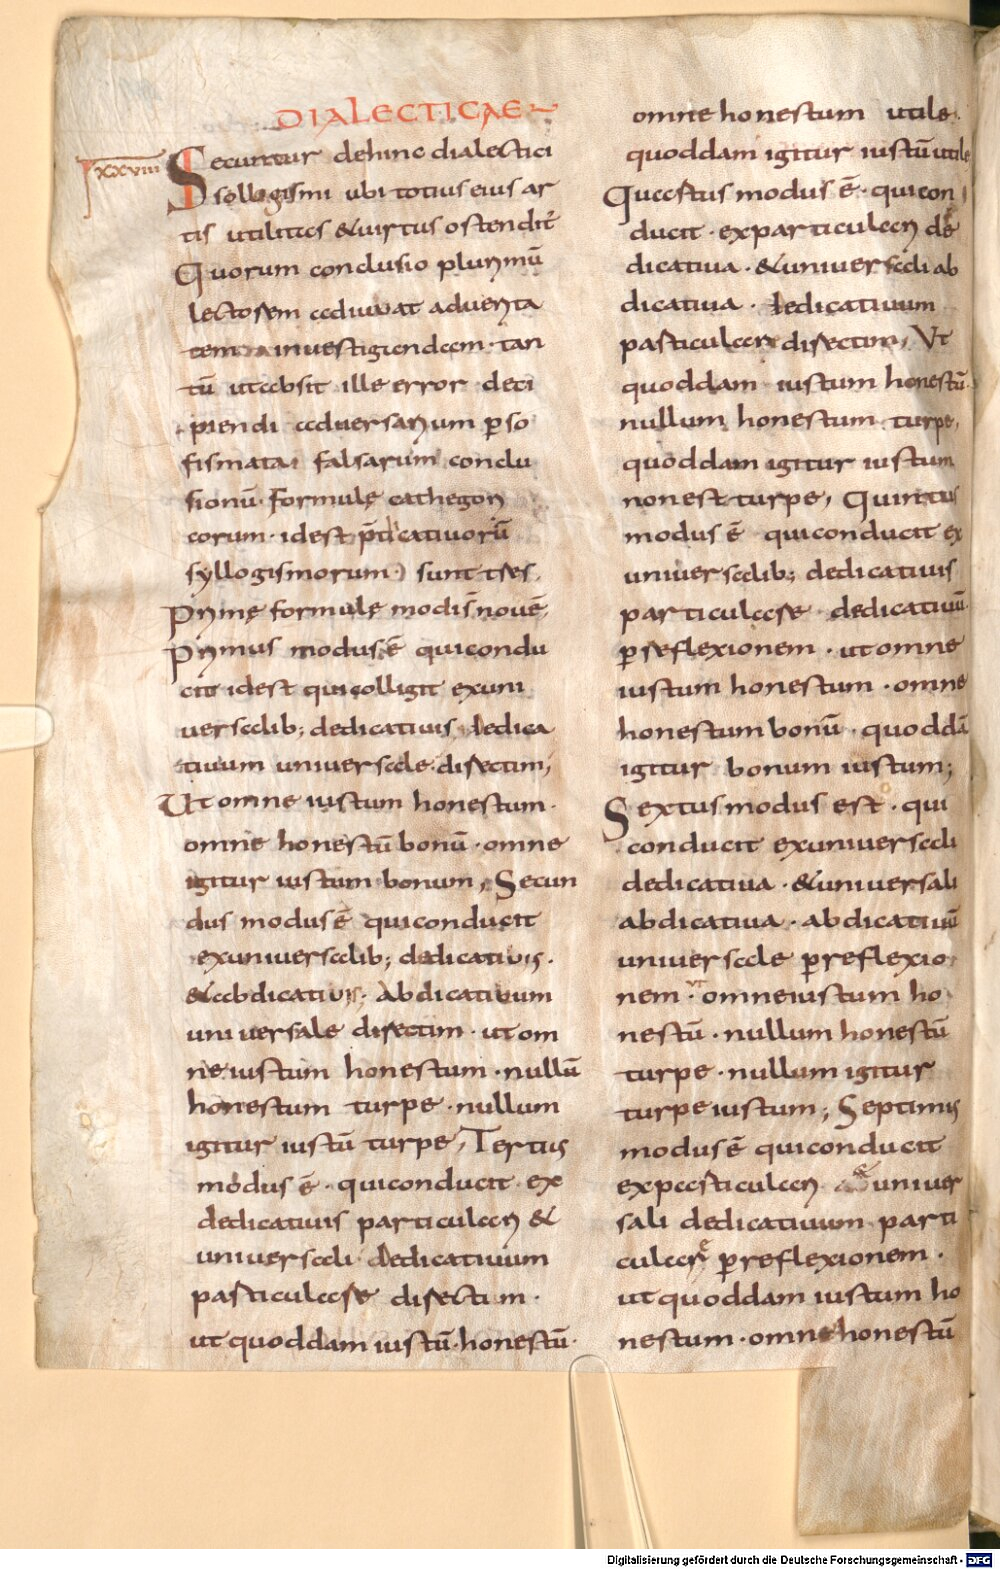 DIALECTICAE
XXVIII
Secuntur dehinc dialectici
sollogismi ubi totius eius ar
tis utilitas & uirtus ostendit̃
Quorum conclusio plurimũ
lectorem adiuuat ad uerita
tem inuestigandam · tan
tũ ut absit ille error deci
piendi aduersarium ꝑ so
fismata falsarum conclu
sionũ · Formulę cathegori
corum · id est p̄dicatiuorũ
syllogismorum sunt tres,
Primę formulę modi s̄ nouẽ,
Primus modus ẽ qui condu
cit id est qui colligit ex uni
uersalib; dedicatiuis dedica
tiuum uniuersale directim;
Ut omne iustum honestum ·
omne honestũ bonũ · omne
igitur iustum bonum, Secun
dus modus ẽ qui conducit
ex uniuersalib; dedicatiuis ·
& abdicatiuis · Abdicatiuum
uniuersale directim · ut om
ne iustum honestum · nullũ
honestum turpe · nullum
igitur iustũ turpe, Tertius
modus ẽ · qui conducit · ex
dedicatiuis particulari &
uniuersali dedicatiuum
particulare directim ·
ut quoddam iustũ · honestũ ·
omne honestum utile ·
quoddam igitur iustũ utile
Quartus modus ẽ · qui con
ducit · ex particulari de
dicatiua · & uniuersali ab
dicatiua · dedicatiuum
particulare directim, Ut
quoddam iustum honestũ ·
nullum honestum turpe,
quoddam igitur iustum
non est turpe, Quintus
modus ẽ qui conducit ex
uniuersalib; dedicatiuis
particulare dedicatiuũ
ꝑ reflexionem · ut omne
iustum honestum · omne
honestum bonũ · quoddã
igitur bonum iustum;
Sextus modus est · qui
conducit ex uniuersali
dedicatiua · & uniuersali
abdicatiua · abdicatiuũ
uniuersale ꝑ reflexio
nem · ut omne iustum ho
nestũ · nullum honestũ
turpe · nullum igitur
turpe iustum; Septimus
modus ẽ qui conducit
ex particulari & uniuer
sali dedicatiuum parti
culare ꝑ reflexionem ·
ut quoddam iustum ho
nestum · omne honestũ
Digitalisierung gefördert durch die Deutsche Forschungsgemeinschaft - DFG